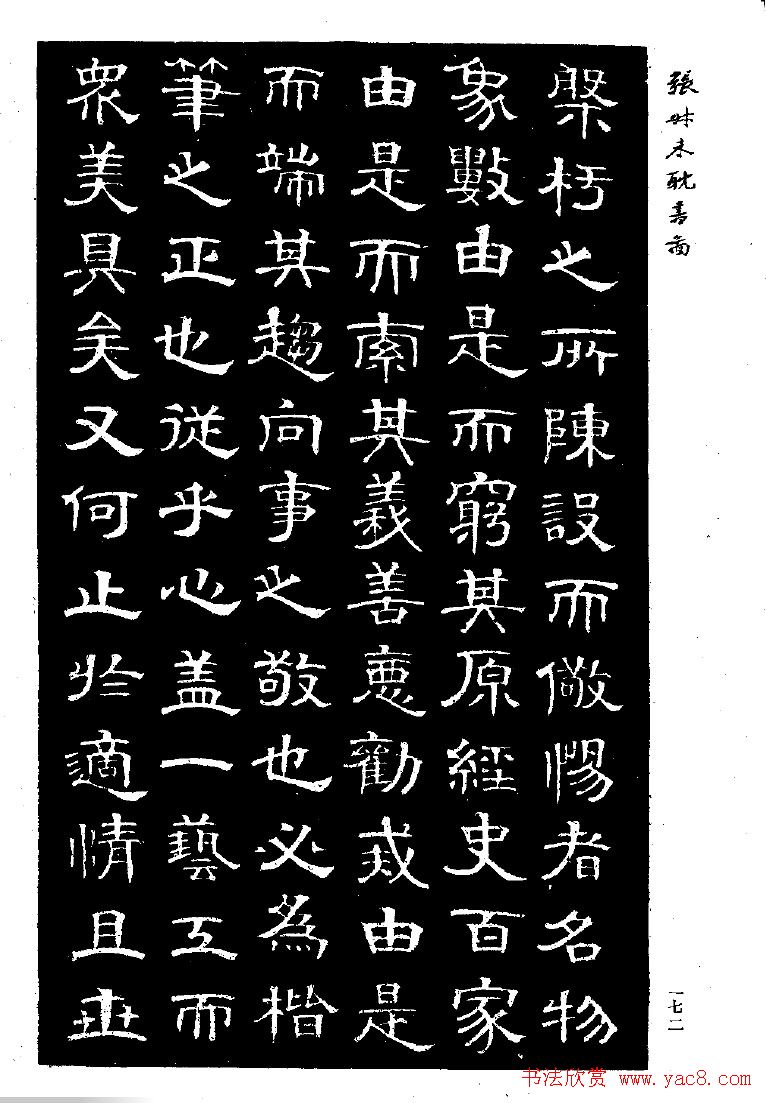 張叔未耽書啚
槃杅之所陳設而儆惕者名物
象數由是而窮其原經史百家
由是而索其義善惡勸戒由是
而端其趨向事之敬也必為楷
筆之正也從乎心盖一藝工而
眾美具矣又何止於適情且世
一七二
书法欣赏 www.yac8.com